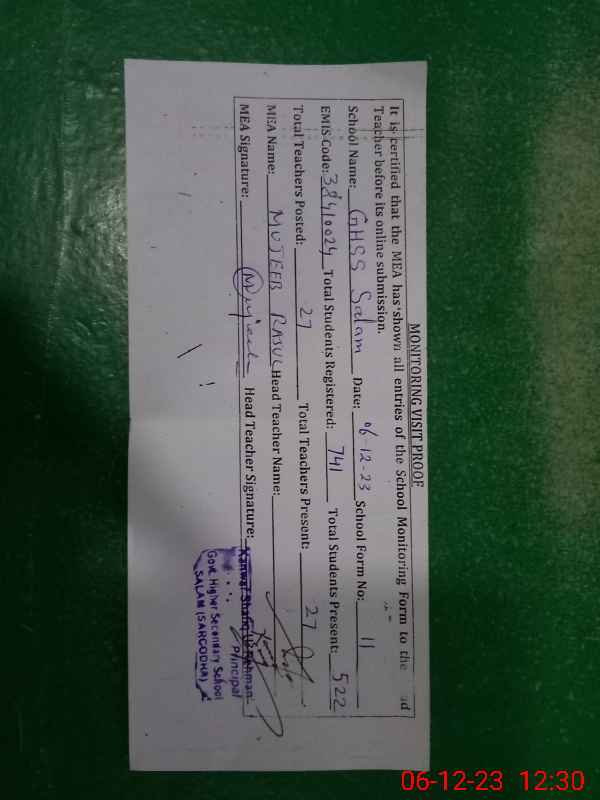 MONITORING VISIT PROOF
It is certified that the MEA has shown all entries of the School Monitoring Form to the ad
Teacher before its online submission.
School Name: GHSS Salam Date: 06-12-23 School Form No: 11
EMIS Code: 38410024 Total Students Registered: 741 Total Students Present: 522
Total Teachers Posted: 27 Total Teachers Present: 27
MEA Name: MUJEEB RASUL Head Teacher Name:
MEA Signature: Mujeeb Head Teacher Signature:
Principal
Govt. Higher Secondary School
SALAM (SARGODHA)
06-12-23 12:30